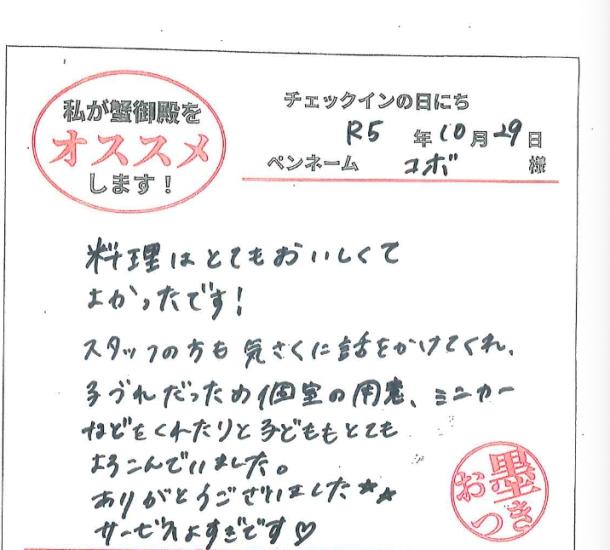 私が蟹御殿を
オススメ
します！
チェックインの日にち
R5 年 10 月 29 日
ペンネーム コボ 様
料理はとてもおいしくて
よかったです！
スタッフの方も気さくに話をかけてくれ、
子づれだっため個室の用意、ミニカー
などをくれたりと子どももとても
よろこんでいました。
ありがとうございました★★
サービスよすぎです♡
お墨
つき